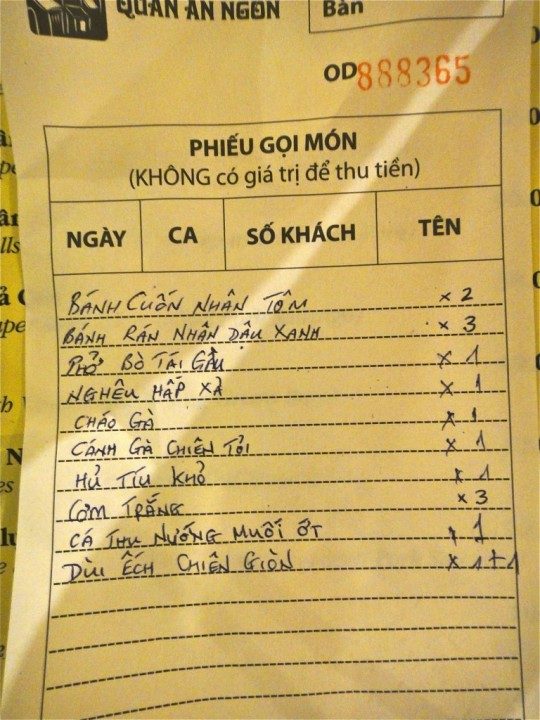 QUÁN ĂN NGON
Bàn
OD888365
PHIẾU GỌI MÓN
(KHÔNG có giá trị để thu tiền)
NGÀY CA SỐ KHÁCH TÊN
BÁNH CUỐN NHÂN TÔM x 2
BÁNH RÁN NHÂN DẬU XANH x 3
PHỞ BÒ TÁI GẦU x 1
NGHÊU HẤP XẢ x 1
CHÁO GÀ x 1
CÁNH GÀ CHIÊN TỎI x 1
HỦ TÍU KHỎ x 1
CƠM TRẮNG x 3
CÁ THU NƯỚNG MUỐI ỚT x 1
DÙI ẾCH CHIÊN GIÒN x 1+1